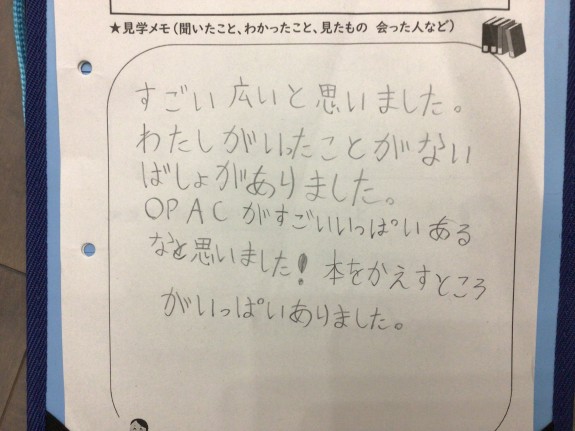 ★見学メモ（聞いたこと、わかったこと、見たもの 会った人など）
すごい広いと思いました。
わたしがいったことがない
ばしょがありました。
OPACがすごいいっぱいある
なと思いました！本をかえすところ
がいっぱいありました。